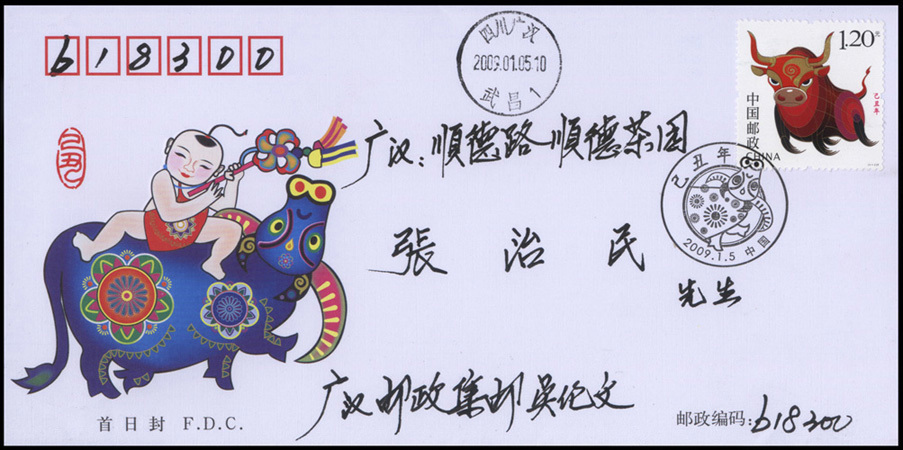 618300
四川广汉
2009.01.05.10
武昌1
1.20元
己丑年
中国邮政
CHINA
己丑
广汉：順德路順德茶园
己丑年
2009.1.5 中国
張治民
先生
广汉邮政集邮吴伦文
首日封 F.D.C.
邮政编码：618300